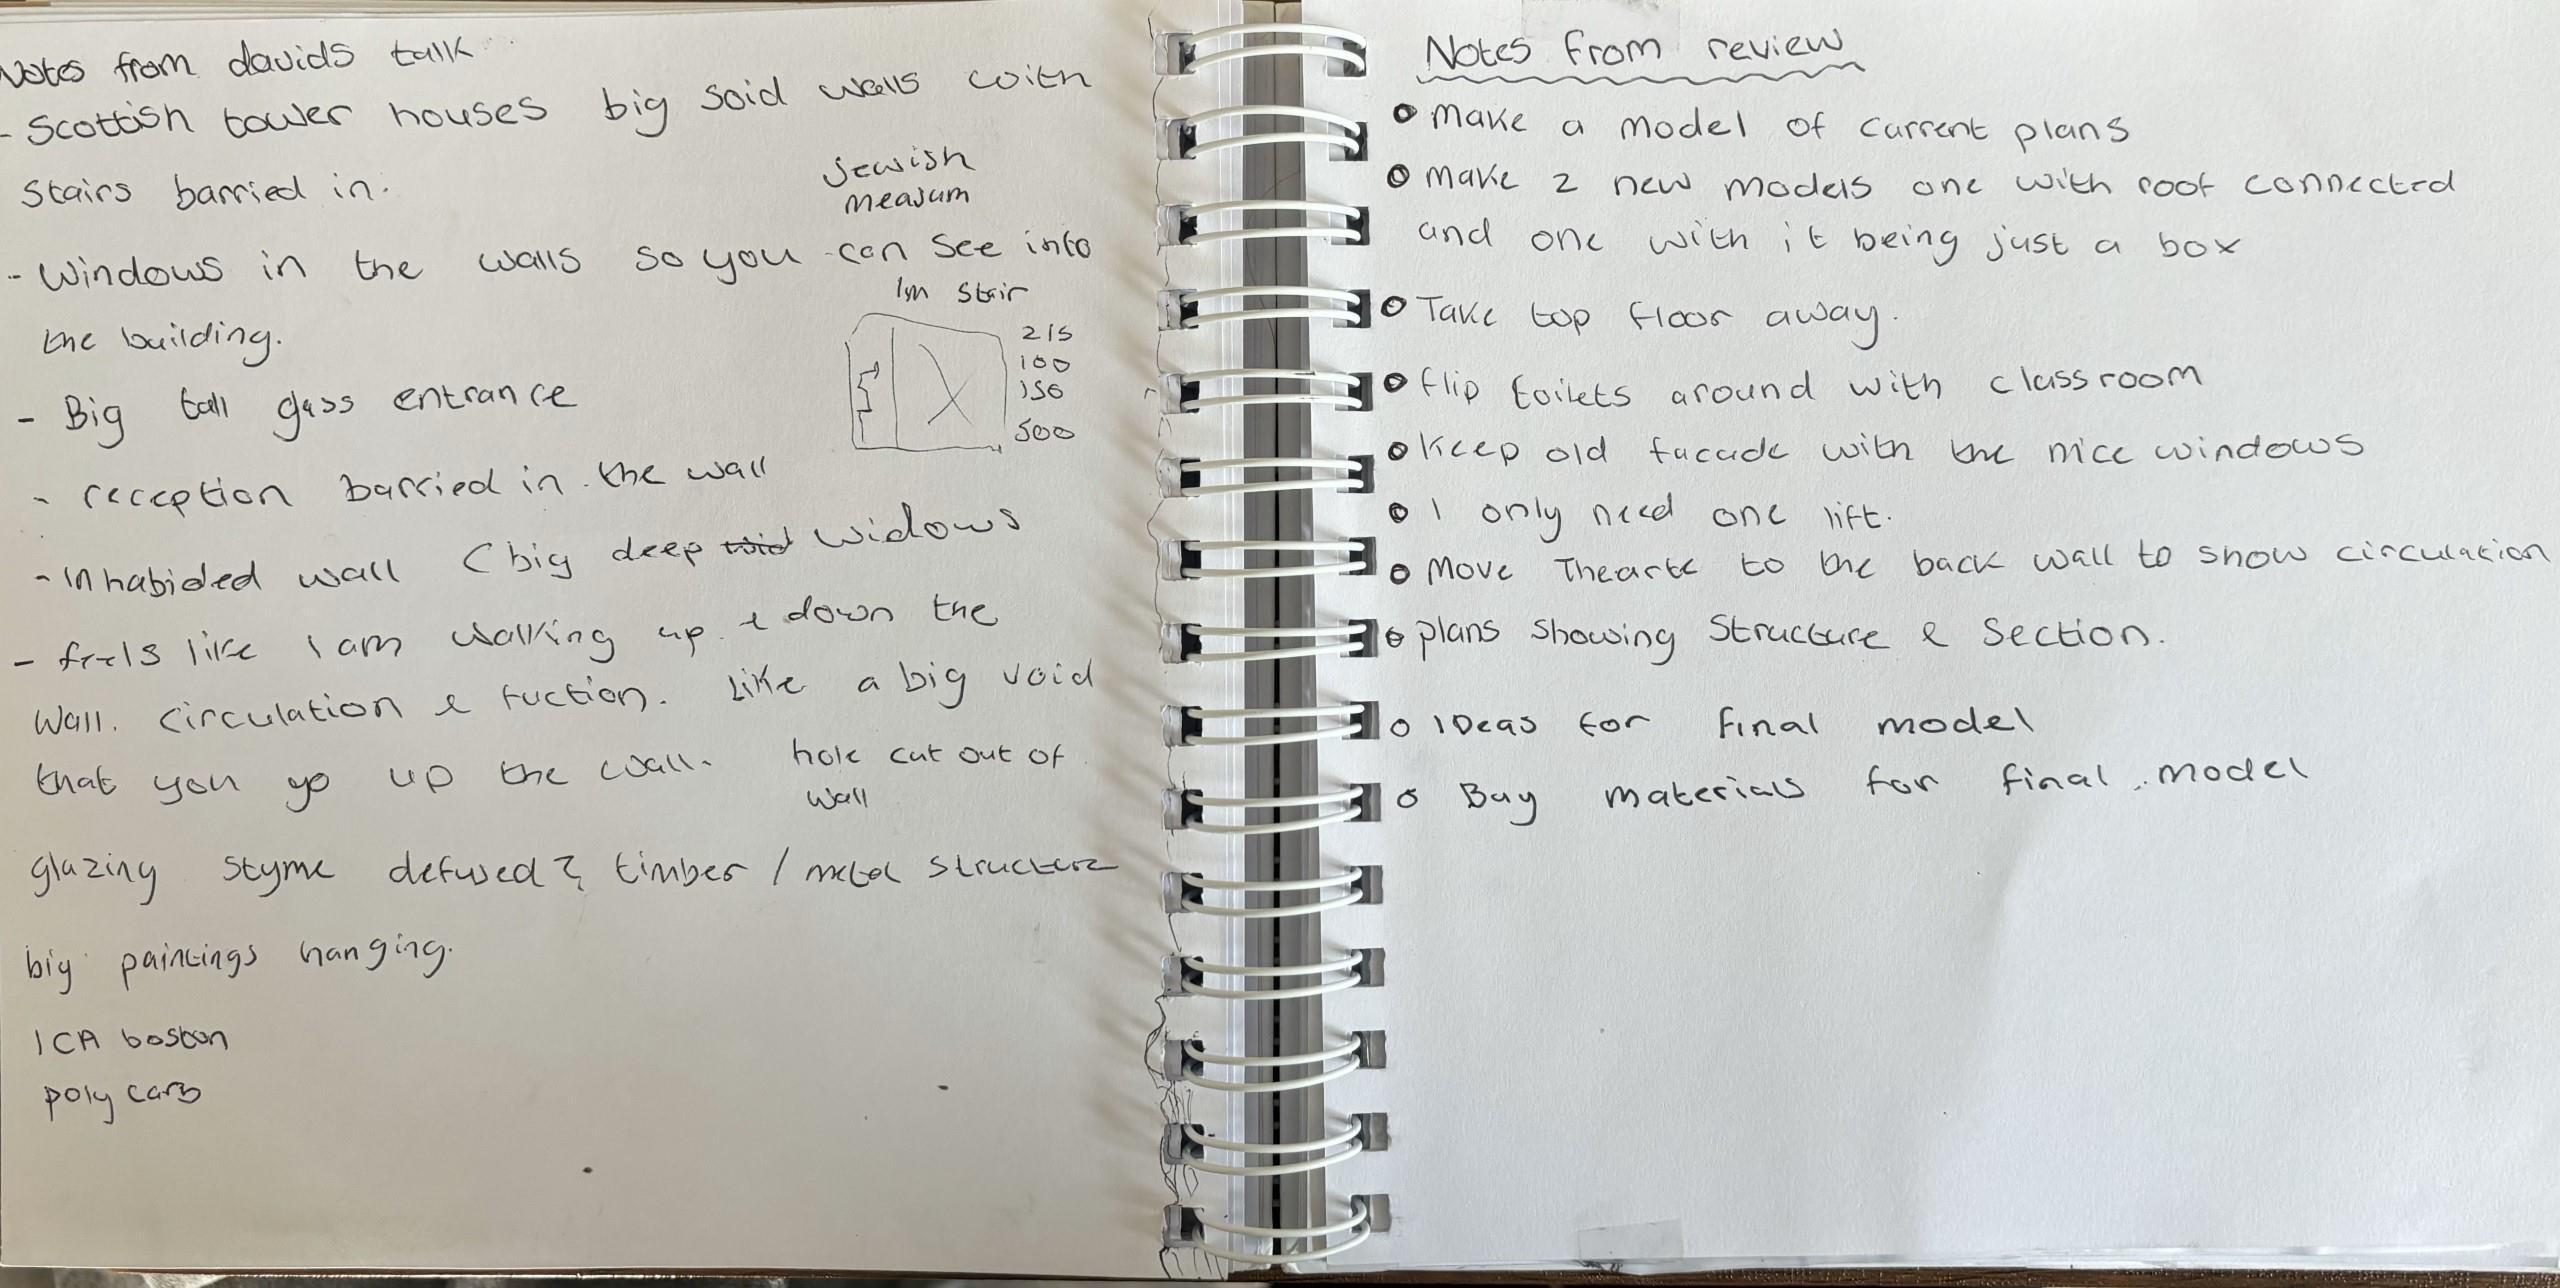 Notes from davids talk
- Scottish tower houses big soid walls with
Stairs barried in.
Jewish
measum
- Windows in the walls so you can see into
the building.
1m Stair
215
100
150
500
- Big tall glass entrance
- reception barried in the wall
- Inhabided wall (big deep widows
- feels like I am walking up & down the
Wall. circulation & fuction. Like a big void
that you go up the wall. hole cut out of
wall
glazing styme defused? timber / metal structure
big paintings hanging.
ICA boston
poly carb
Notes from review
• Make a model of current plans
• Make 2 new models one with roof connected
and one with it being just a box
• Take top floor away.
• flip toilets around with classroom
• Keep old facade with the nice windows
• I only need one lift.
• Move Thearte to the back wall to show circulation
• plans showing structure & section.
• IDeas for final model
• Buy materials for final model